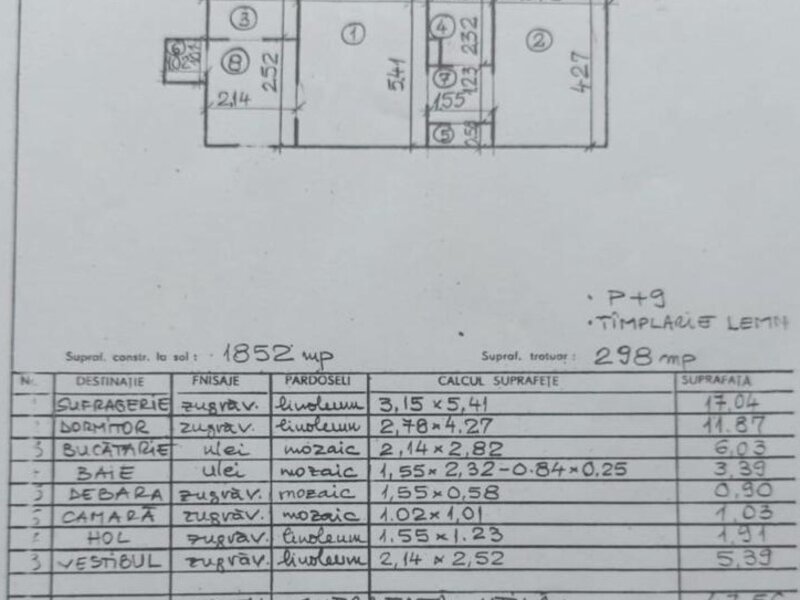 3
1
4
232
2
6
1,02
8
252
541
7
1,23
427
2,14
1,55
5
0,58
• P+9
• TÎMPLARIE LEMN
Supraf. constr. la sol : 1852 mp Supraf. trotuar : 298 mp
Nr. DESTINAȚIE FNISAJE PARDOSELI CALCUL SUPRAFEȚE SUPRAFAȚA
1 SUFRAGERIE zugrăv. linoleum 3,15 x 5,41 17.04
DORMITOR zugrăv. linoleum 2,78 x 4.27 11.87
3 BUCĂTARIE ulei mozaic 2,14 x 2,82 6,03
BAIE ulei mozaic 1,55 x 2,32 - 0.84 x 0,25 3,39
DEBARA zugrăv. mozaic 1,55 x 0,58 0,90
CAMARĂ zugrăv. mozaic 1.02 x 1,01 1,03
HOL zugrăv. linoleum 1.55 x 1.23 1,91
VESTIBUL zugrăv. linoleum 2,14 x 2,52 5,39